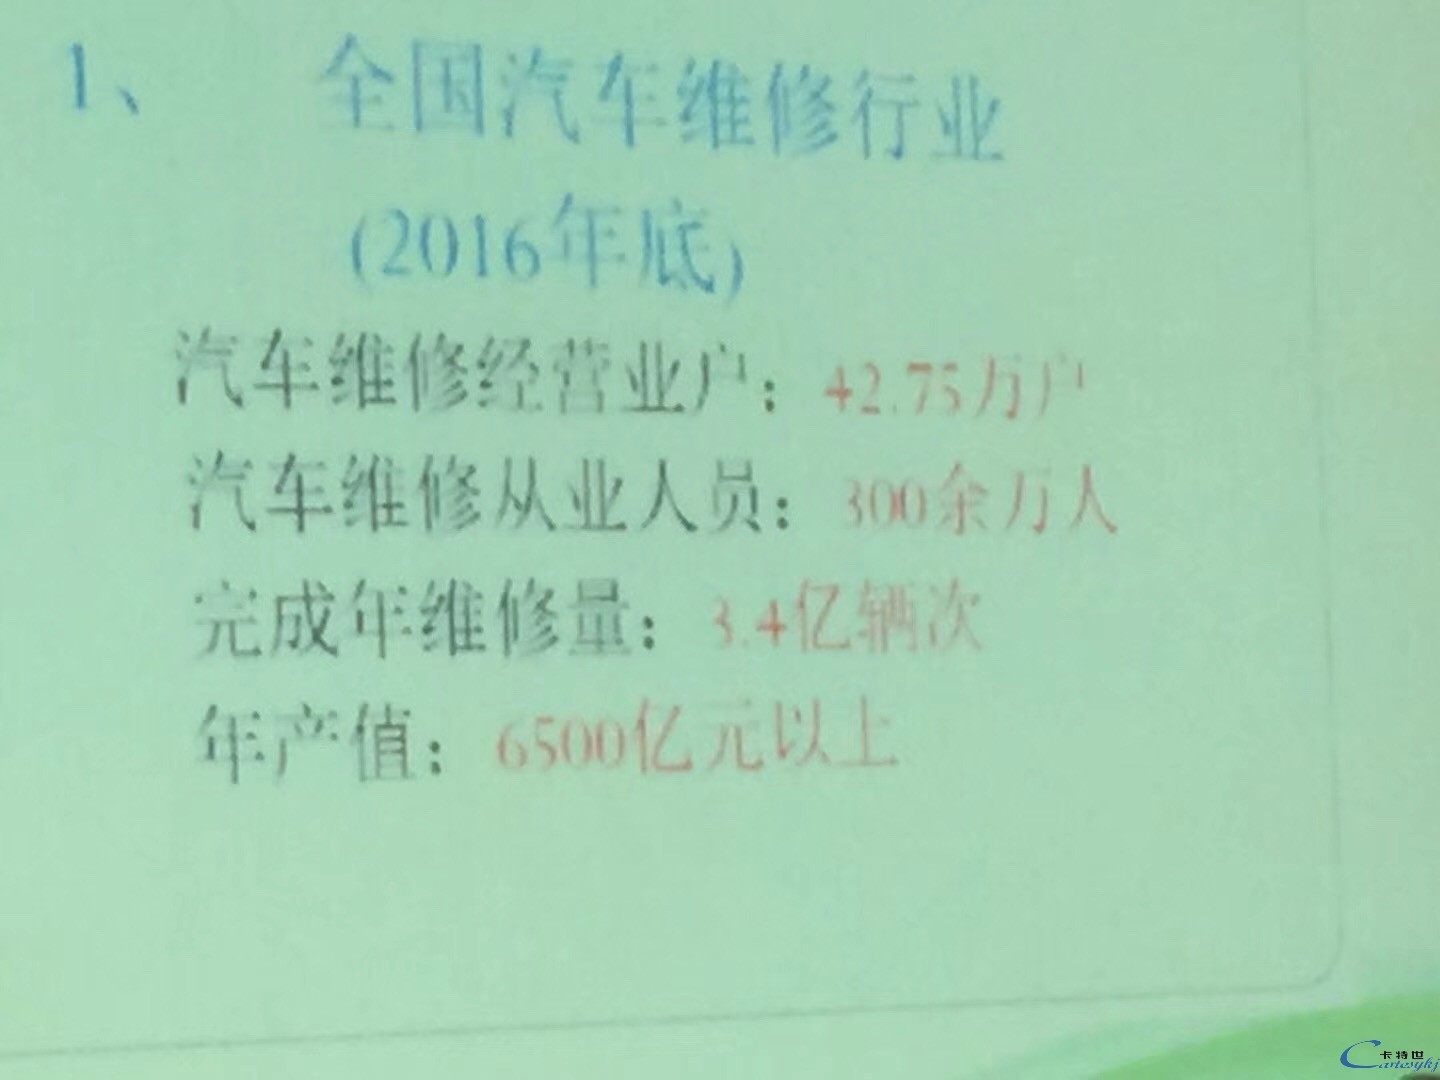 1、 全国汽车维修行业
(2016年底)
汽车维修经营业户：42.75万户
汽车维修从业人员：300余万人
完成年维修量：3.4亿辆次
年产值：6500亿元以上
卡特世
Cartesykj